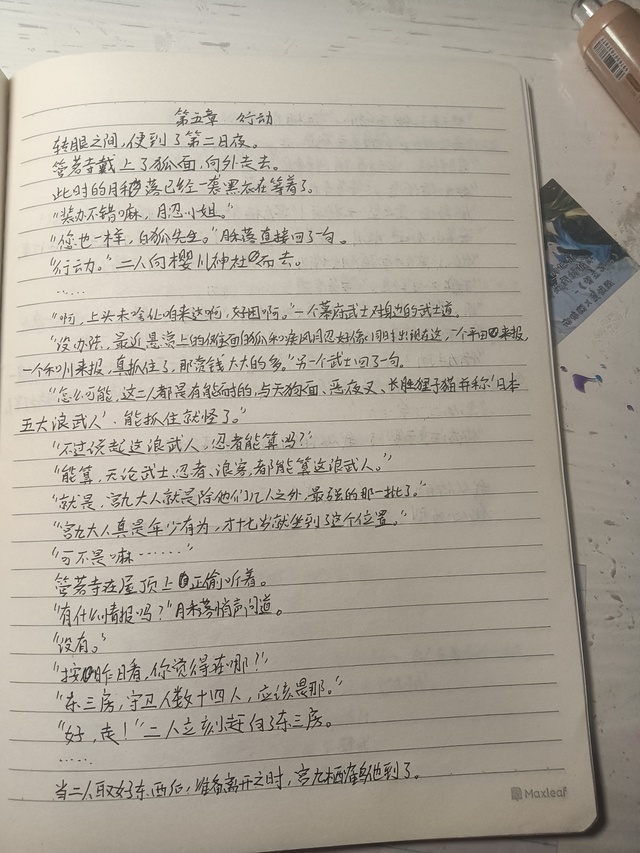 第五章 行动
转眼之间,便到了第二日夜。
管若寺戴上了狐面,向外走去。
此时的月禾落已经一袭黑衣在等着了。
“装办不错嘛,月忍小姐。”
“您也一样,白狐先生。”月禾落直接回了一句。
“行动。”二人向樱川神社而去。
……
“啊,上头未啥让咱来这啊,好困啊。”一个幕府武士对身边的武士道。
“没办法,最近悬赏上的假面白狐和疾风月忍好像同时出现在这,一个平田来报,
一个和川来报,真抓住了,那赏钱大大的多。”另一个武士回了一句。
“怎么可能,这二人都是有能耐的,与天狗面、恶夜叉、长胜狸子猫并称‘日本
五大浪武人’,能抓住就怪了。”
“不过说起这浪武人,忍者能算吗?”
“能算,无论武士、忍者、浪客,都能算这浪武人。”
“就是,宫九大人就是除他们几人之外,最强的那一批了。”
“宫九大人真是年少有为,才十七岁就坐到了这个位置。”
“可不是嘛……”
管若寺在屋顶上正偷听着。
“有什么情报吗?”月禾落悄声问道。
“没有。”
“按昨日看,你觉得在哪?”
“东三房,守卫人数十四人,应该是那。”
“好,走!”二人立刻赶向了东三房。
……
当二人取好东西后,准备离开之时,宫九栖他到了。
Maxleaf